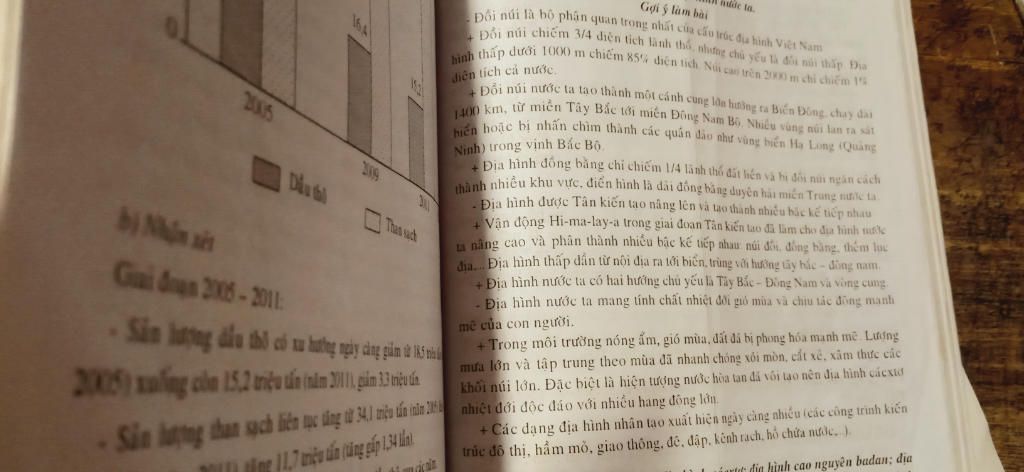 0
16,4
15,2
2005
2009
2011
Dầu thô
Than sạch
b) Nhận xét
Giai đoạn 2005 – 2011:
- Sản lượng dầu thô có xu hướng ngày càng giảm từ 18,5 triệu
2005) xuống còn 15,2 triệu tấn (năm 2011), giảm 3,3 triệu tấn.
- Sản lượng than sạch liên tục tăng từ 34,1 triệu tấn (năm 2005)
tăng 11,7 triệu tấn (tăng gấp 1,34 lần).
nước ta.
Gợi ý làm bài
- Đồi núi là bộ phận quan trọng nhất của cấu trúc địa hình Việt Nam
+ Đồi núi chiếm 3/4 diện tích lãnh thổ, nhưng chủ yếu là đồi núi thấp. Địa
hình thấp dưới 1000 m chiếm 85% diện tích. Núi cao trên 2000 m chỉ chiếm 1%
diện tích cả nước.
+ Đồi núi nước ta tạo thành một cánh cung lớn hướng ra Biển Đông, chạy dài
1400 km, từ miền Tây Bắc tới miền Đông Nam Bộ. Nhiều vùng núi lan ra sát
biển hoặc bị nhấn chìm thành các quần đảo như vùng biển Hạ Long (Quảng
Ninh) trong vịnh Bắc Bộ.
+ Địa hình đồng bằng chỉ chiếm 1/4 lãnh thổ đất liền và bị đồi núi ngăn cách
thành nhiều khu vực, điển hình là dải đồng bằng duyên hải miền Trung nước ta.
- Địa hình được Tân kiến tạo nâng lên và tạo thành nhiều bậc kế tiếp nhau
+ Vận động Hi-ma-lay-a trong giai đoạn Tân kiến tạo đã làm cho địa hình nước
ta nâng cao và phân thành nhiều bậc kế tiếp nhau: núi đồi, đồng bằng, thềm lục
địa,... Địa hình thấp dần từ nội địa ra tới biển, trùng với hướng tây bắc – đông nam.
+ Địa hình nước ta có hai hướng chủ yếu là Tây Bắc – Đông Nam và vòng cung.
- Địa hình nước ta mang tính chất nhiệt đới gió mùa và chịu tác động mạnh
mẽ của con người.
+ Trong môi trường nóng ẩm, gió mùa, đất đá bị phong hóa mạnh mẽ. Lượng
mưa lớn và tập trung theo mùa đã nhanh chóng xói mòn, cắt xẻ, xâm thực các
khối núi lớn. Đặc biệt là hiện tượng nước hòa tan đá vôi tạo nên địa hình cácxtơ
nhiệt đới độc đáo với nhiều hang động lớn.
+ Các dạng địa hình nhân tạo xuất hiện ngày càng nhiều (các công trình kiến
trúc đô thị, hầm mỏ, giao thông, đê, đập, kênh rạch, hồ chứa nước,...).
địa hình cao nguyên badan; địa